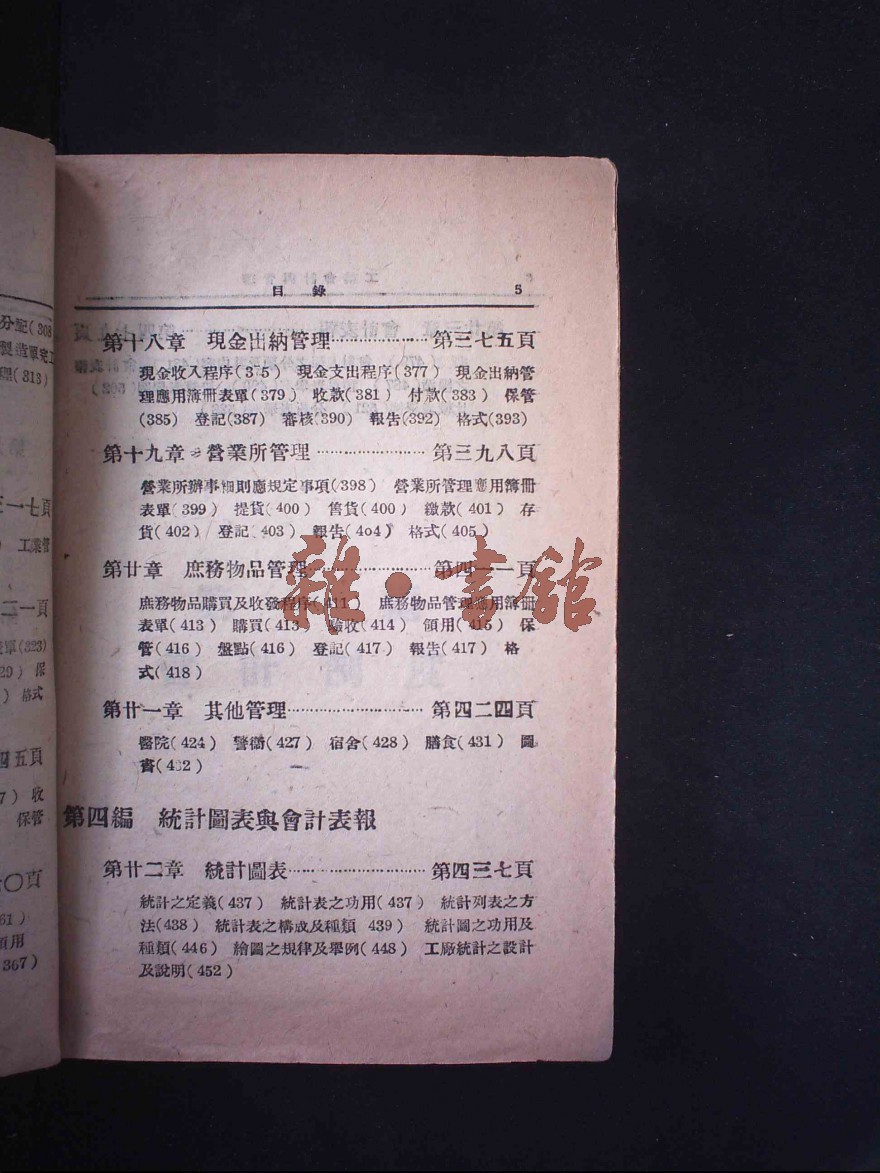 目錄 5
第十八章 現金出納管理 第三七五頁
現金收入程序(375) 現金支出程序(377) 現金出納管
理應用簿冊表單(379) 收款(381) 付款(383) 保管
(385) 登記(387) 審核(390) 報告(392) 格式(393)
第十九章 營業所管理 第三九八頁
營業所辦事細則應規定事項(398) 營業所管理應用簿冊
表單(399) 提貨(400) 售貨(400) 繳款(401) 存
貨(402) 登記(403) 報告(404) 格式(405)
第廿章 庶務物品管理 第四一一頁
庶務物品購買及收發程序(411) 庶務物品管理應用簿冊
表單(413) 購買(413) 驗收(414) 領用(415) 保
管(416) 盤點(416) 登記(417) 報告(417) 格
式(418)
第廿一章 其他管理 第四二四頁
醫院(424) 警衛(427) 宿舍(428) 膳食(431) 圖
書(432)
第四編 統計圖表與會計表報
第廿二章 統計圖表 第四三七頁
統計之定義(437) 統計表之功用(437) 統計列表之方
法(438) 統計表之構成及種類 439) 統計圖之功用及
種類(446) 繪圖之規律及舉例(448) 工廠統計之設計
及說明(452)
雜·書館
分配(308
製造單完工
理(313)
一七頁
工業管
二一頁
單(323)
29) 保
) 格式
四五頁
7) 收
保管
〇頁
61)
領用
367)